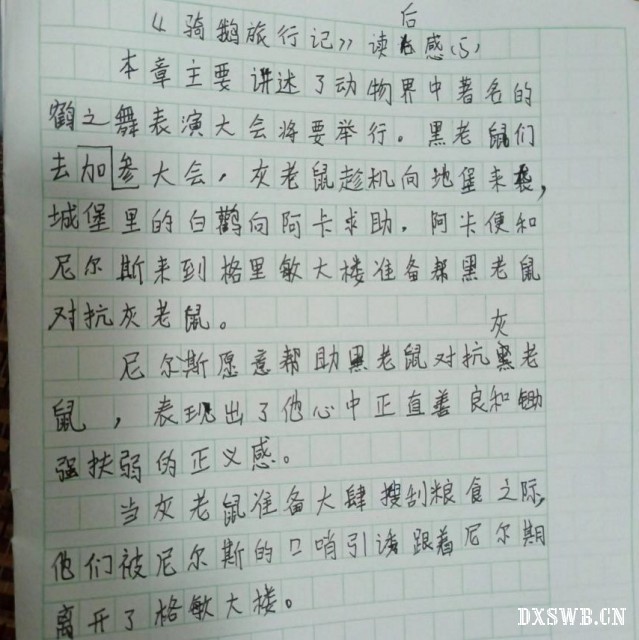 《骑鹅旅行记》读后感(5)
本章主要讲述了动物界中著名的
鹤之舞表演大会将要举行。黑老鼠们
去加参大会，灰老鼠趁机向地堡来袭，
城堡里的白鹳向阿卡求助．阿卡便和
尼尔斯来到格里敏大楼准备帮黑老鼠
对抗灰老鼠。
尼尔斯愿意帮助黑老鼠对抗灰老
鼠，表现出了他心中正直善良和锄
强扶弱的正义感。
当灰老鼠准备大肆搜刮粮食之际，
他们被尼尔斯的口哨引诱跟着尼尔期
离开了格敏大楼。
DXSWB.CN